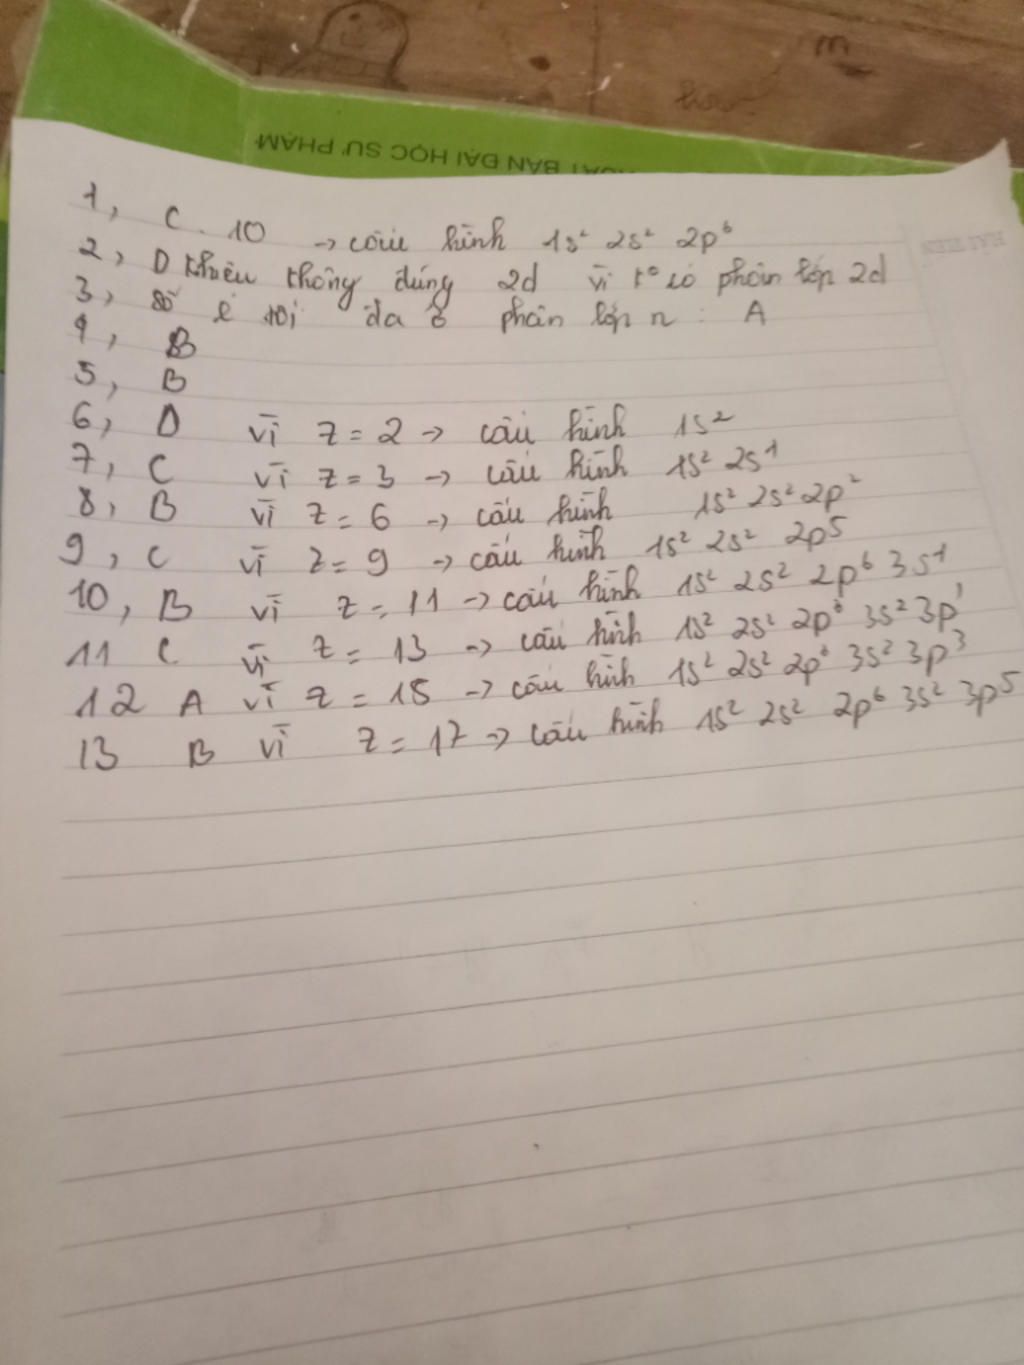 HAI TIEN
XUẤT BẢN ĐẠI HỌC SƯ PHẠM
1, C. 10 -> cấu hình 1s² 2s² 2p⁶
2, D không đúng 2d vì k° có phân lớp 2d
3, số e tối đa ở phân lớp n : A
4, B
5, B
6, D vì z = 2 -> cấu hình 1s²
7, C vì z = 3 -> cấu hình 1s² 2s¹
8, B vì z = 6 -> cấu hình 1s² 2s² 2p²
9, C vì z = 9 -> cấu hình 1s² 2s² 2p⁵
10, B vì z = 11 -> cấu hình 1s² 2s² 2p⁶ 3s¹
11 C vì z = 13 -> cấu hình 1s² 2s² 2p⁶ 3s² 3p¹
12 A vì z = 15 -> cấu hình 1s² 2s² 2p⁶ 3s² 3p³
13 B vì z = 17 -> cấu hình 1s² 2s² 2p⁶ 3s² 3p⁵